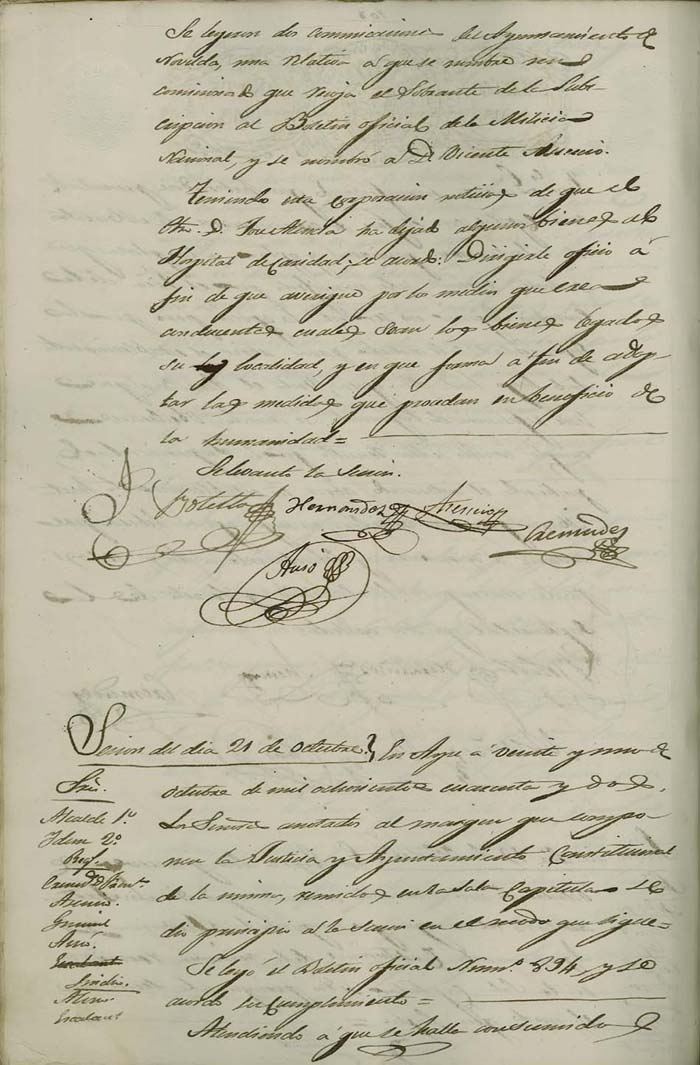 Se leyeron dos comunicaciones del Ayuntamiento de
Novelda, una relativa á que se nombre un
comisionado que recoja el Sobrante de la Subs-
cripcion al Boletin oficial de la Milicia
Nacional, y se nombró á D. Vicente Asencio.
Teniendo esta corporacion noticias de que el
D. José Atencia ha dejado algunos bienes al
Hospital de Caridad, se acordó: Dirigirle oficio á
fin de que averigue por los medios que crea
conducentes cuales sean los bienes legados
su localidad, y en que forma a fin de adop-
tar las medidas que procedan en beneficio de
la humanidad=
Se levantó la Sesion.
Botella Hernandez Asencio
Cremades
Ausó
Sesion del dia 21 de Octubre. En Aspe á veinte y uno de
Sres. octubre de mil ochocientos cuarenta y dos,
Alcalde 1º Los Señores anotados al margen que compo-
Idem 2º nen la Justicia y Ayuntamiento Constitucional
Regs.
Cremades de la misma, reunidos en la Sala Capitular se
Asencio.
dio principio á la sesion en el modo que sigue=
Ausó.
Se leyó el Boletin oficial Num.º 894, y se
Sindic.
acordó su cumplimiento=
Escalant
Atendiendo á que se halla consumido